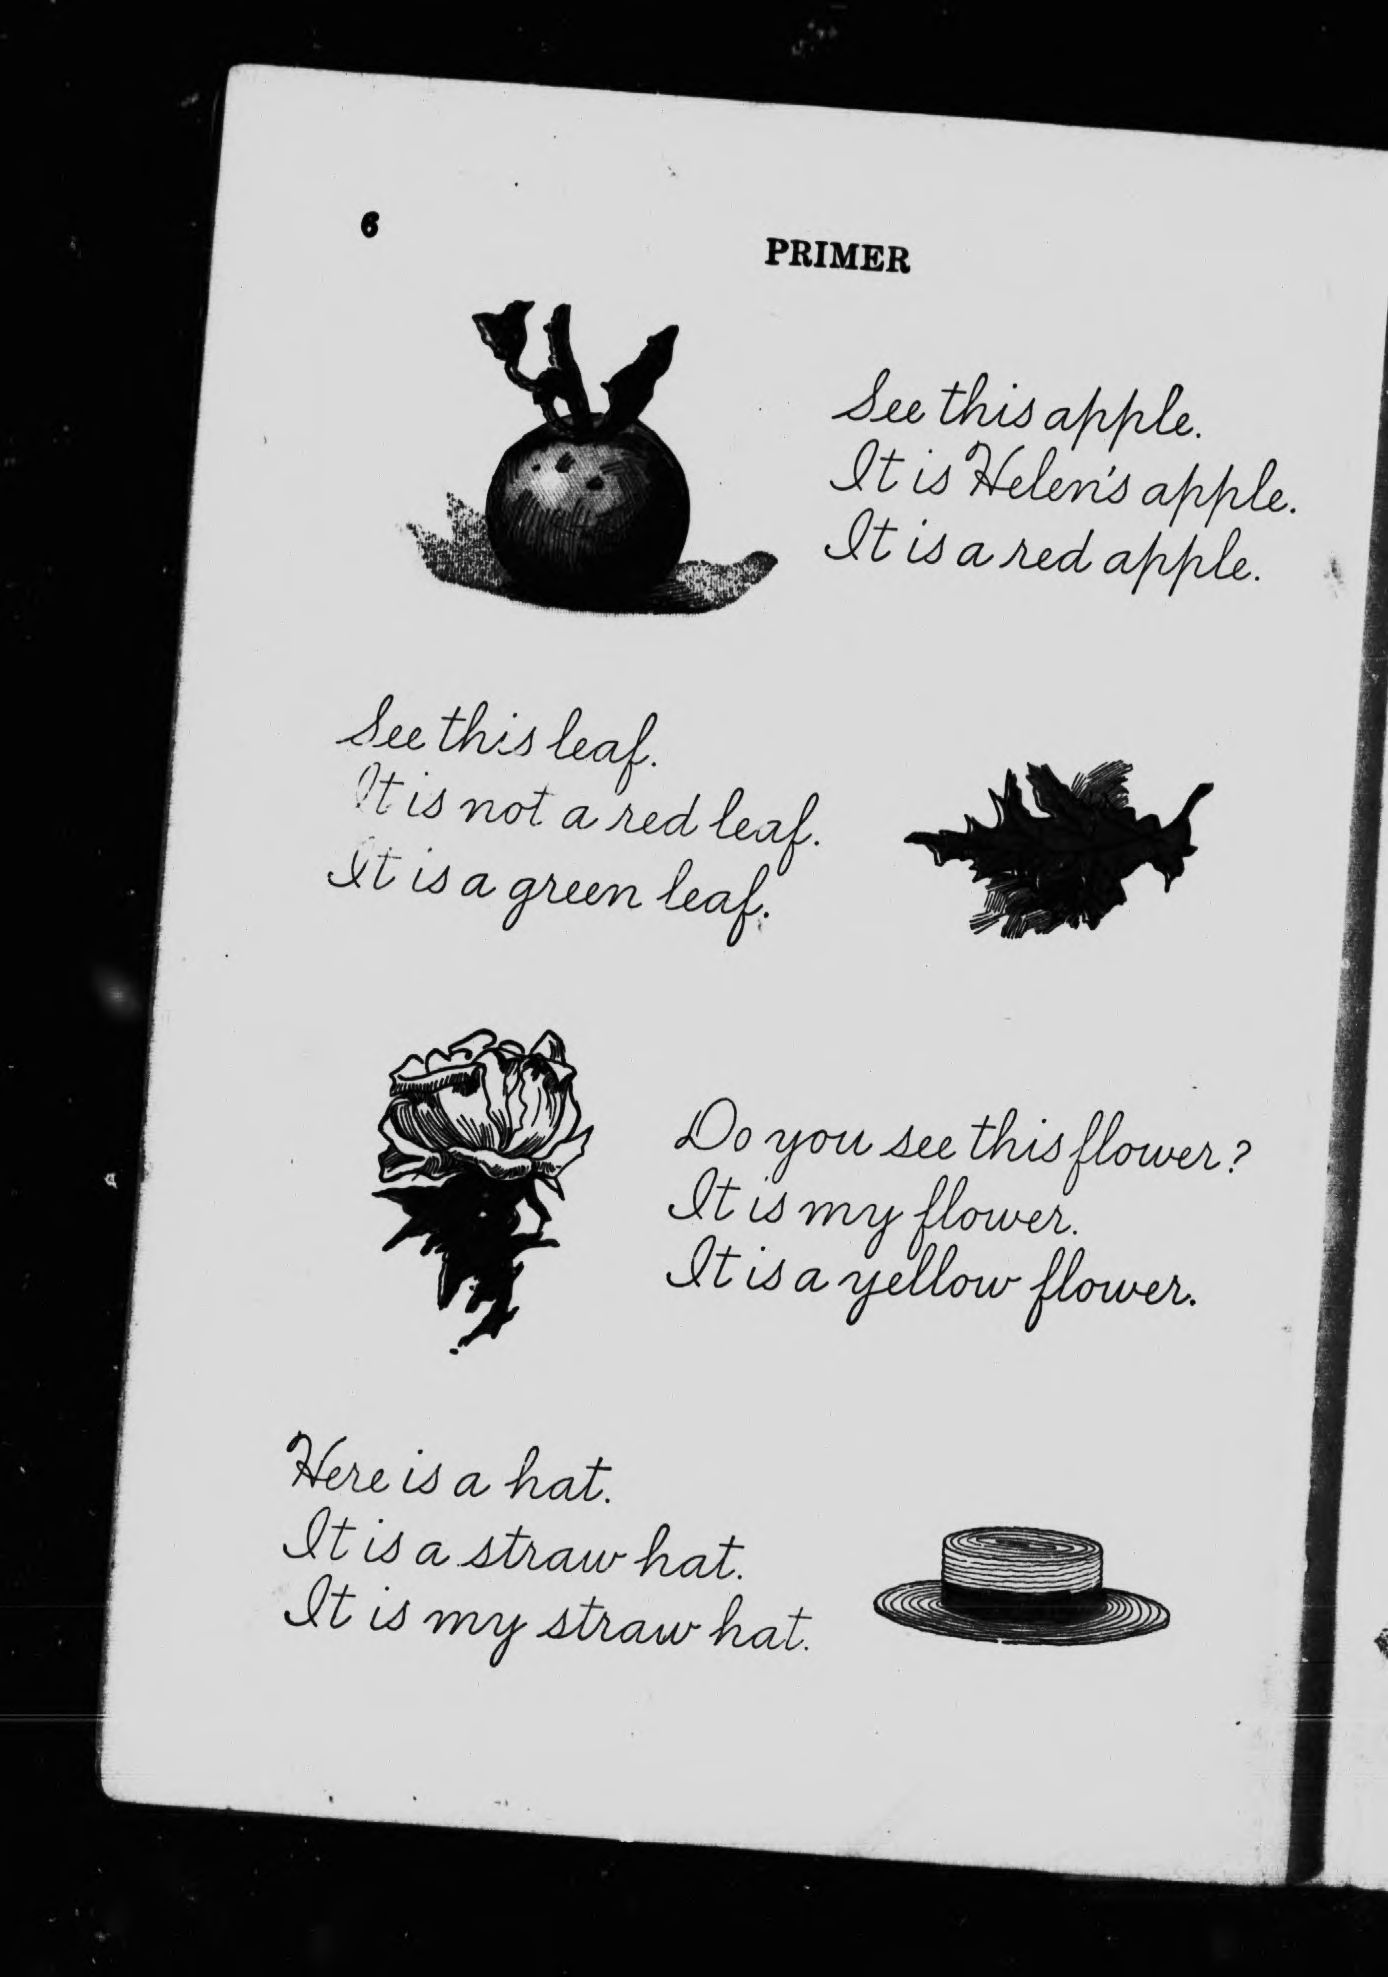 6
PRIMER
See this apple.
It is Helen's apple.
It is a red apple.
See this leaf.
It is not a red leaf.
It is a green leaf.
Do you see this flower?
It is my flower.
It is a yellow flower.
Here is a hat.
It is a straw hat.
It is my straw hat.